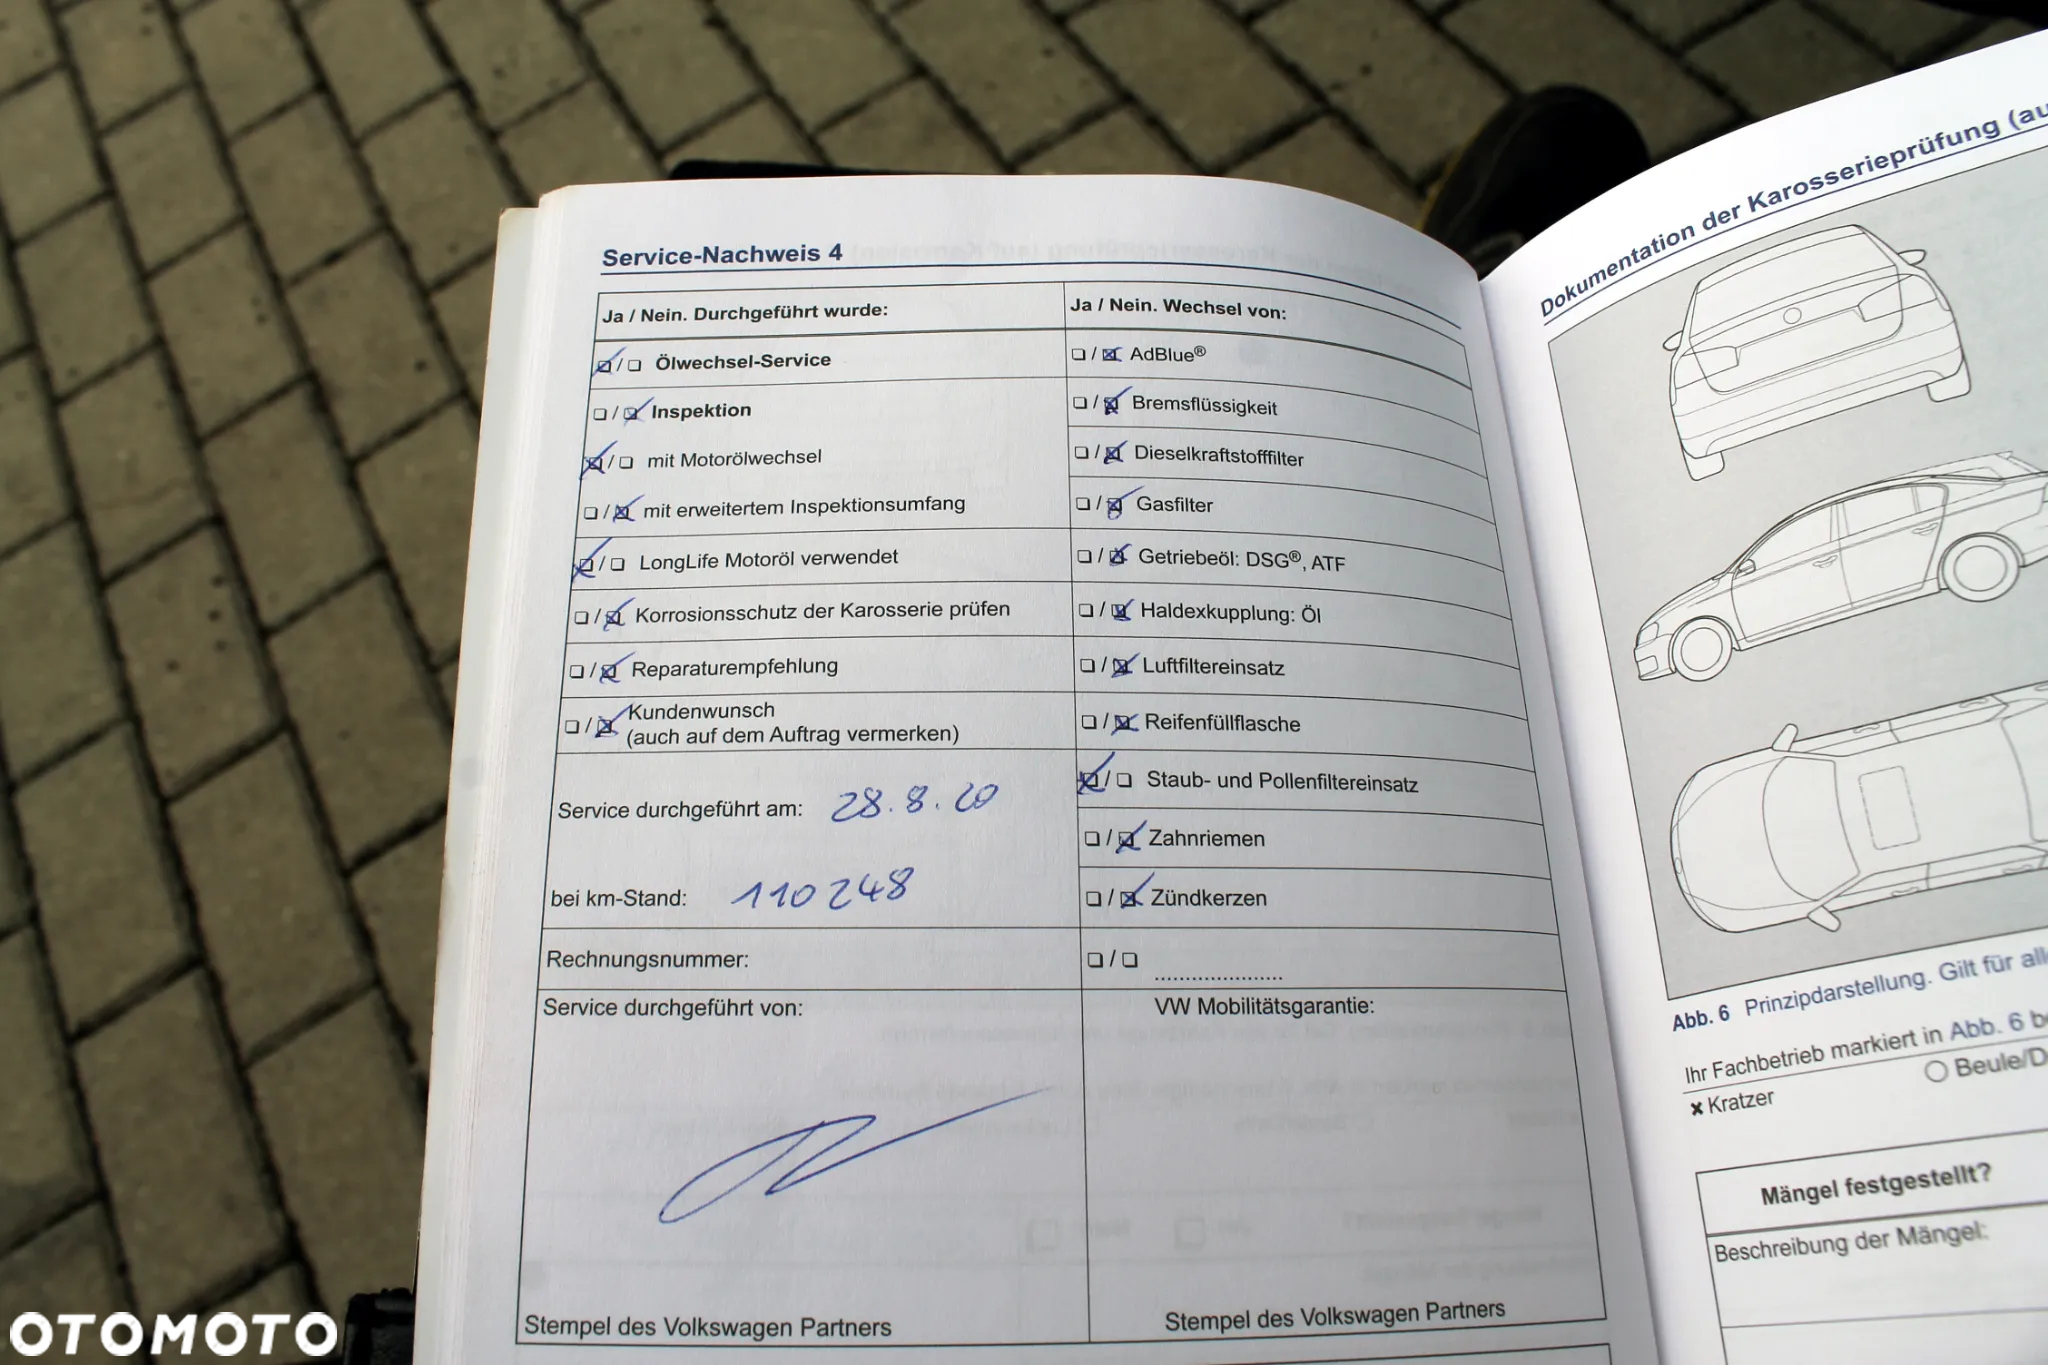 Service-Nachweis 4
Ja / Nein. Durchgeführt wurde:
☒/☐ Ölwechsel-Service
☐/☒ Inspektion
☒/☐ mit Motorölwechsel
☐/☒ mit erweitertem Inspektionsumfang
☒/☐ LongLife Motoröl verwendet
☐/☒ Korrosionsschutz der Karosserie prüfen
☐/☒ Reparaturempfehlung
☐/☒ Kundenwunsch
(auch auf dem Auftrag vermerken)
Service durchgeführt am: 28.8.20
bei km-Stand: 110248
Rechnungsnummer:
Service durchgeführt von:
Stempel des Volkswagen Partners
Ja / Nein. Wechsel von:
☐/☒ AdBlue®
☐/☒ Bremsflüssigkeit
☐/☒ Dieselkraftstofffilter
☐/☒ Gasfilter
☐/☒ Getriebeöl: DSG®, ATF
☐/☒ Haldexkupplung: Öl
☐/☒ Luftfiltereinsatz
☐/☒ Reifenfüllflasche
☒/☐ Staub- und Pollenfiltereinsatz
☐/☒ Zahnriemen
☐/☒ Zündkerzen
☐/☐ ......................
VW Mobilitätsgarantie:
Stempel des Volkswagen Partners
Dokumentation der Karosserieprüfung (au
Abb. 6 Prinzipdarstellung. Gilt für all
Ihr Fachbetrieb markiert in Abb. 6 b
✖ Kratzer ○ Beule/D
Mängel festgestellt?
Beschreibung der Mängel:
OTOMOTO